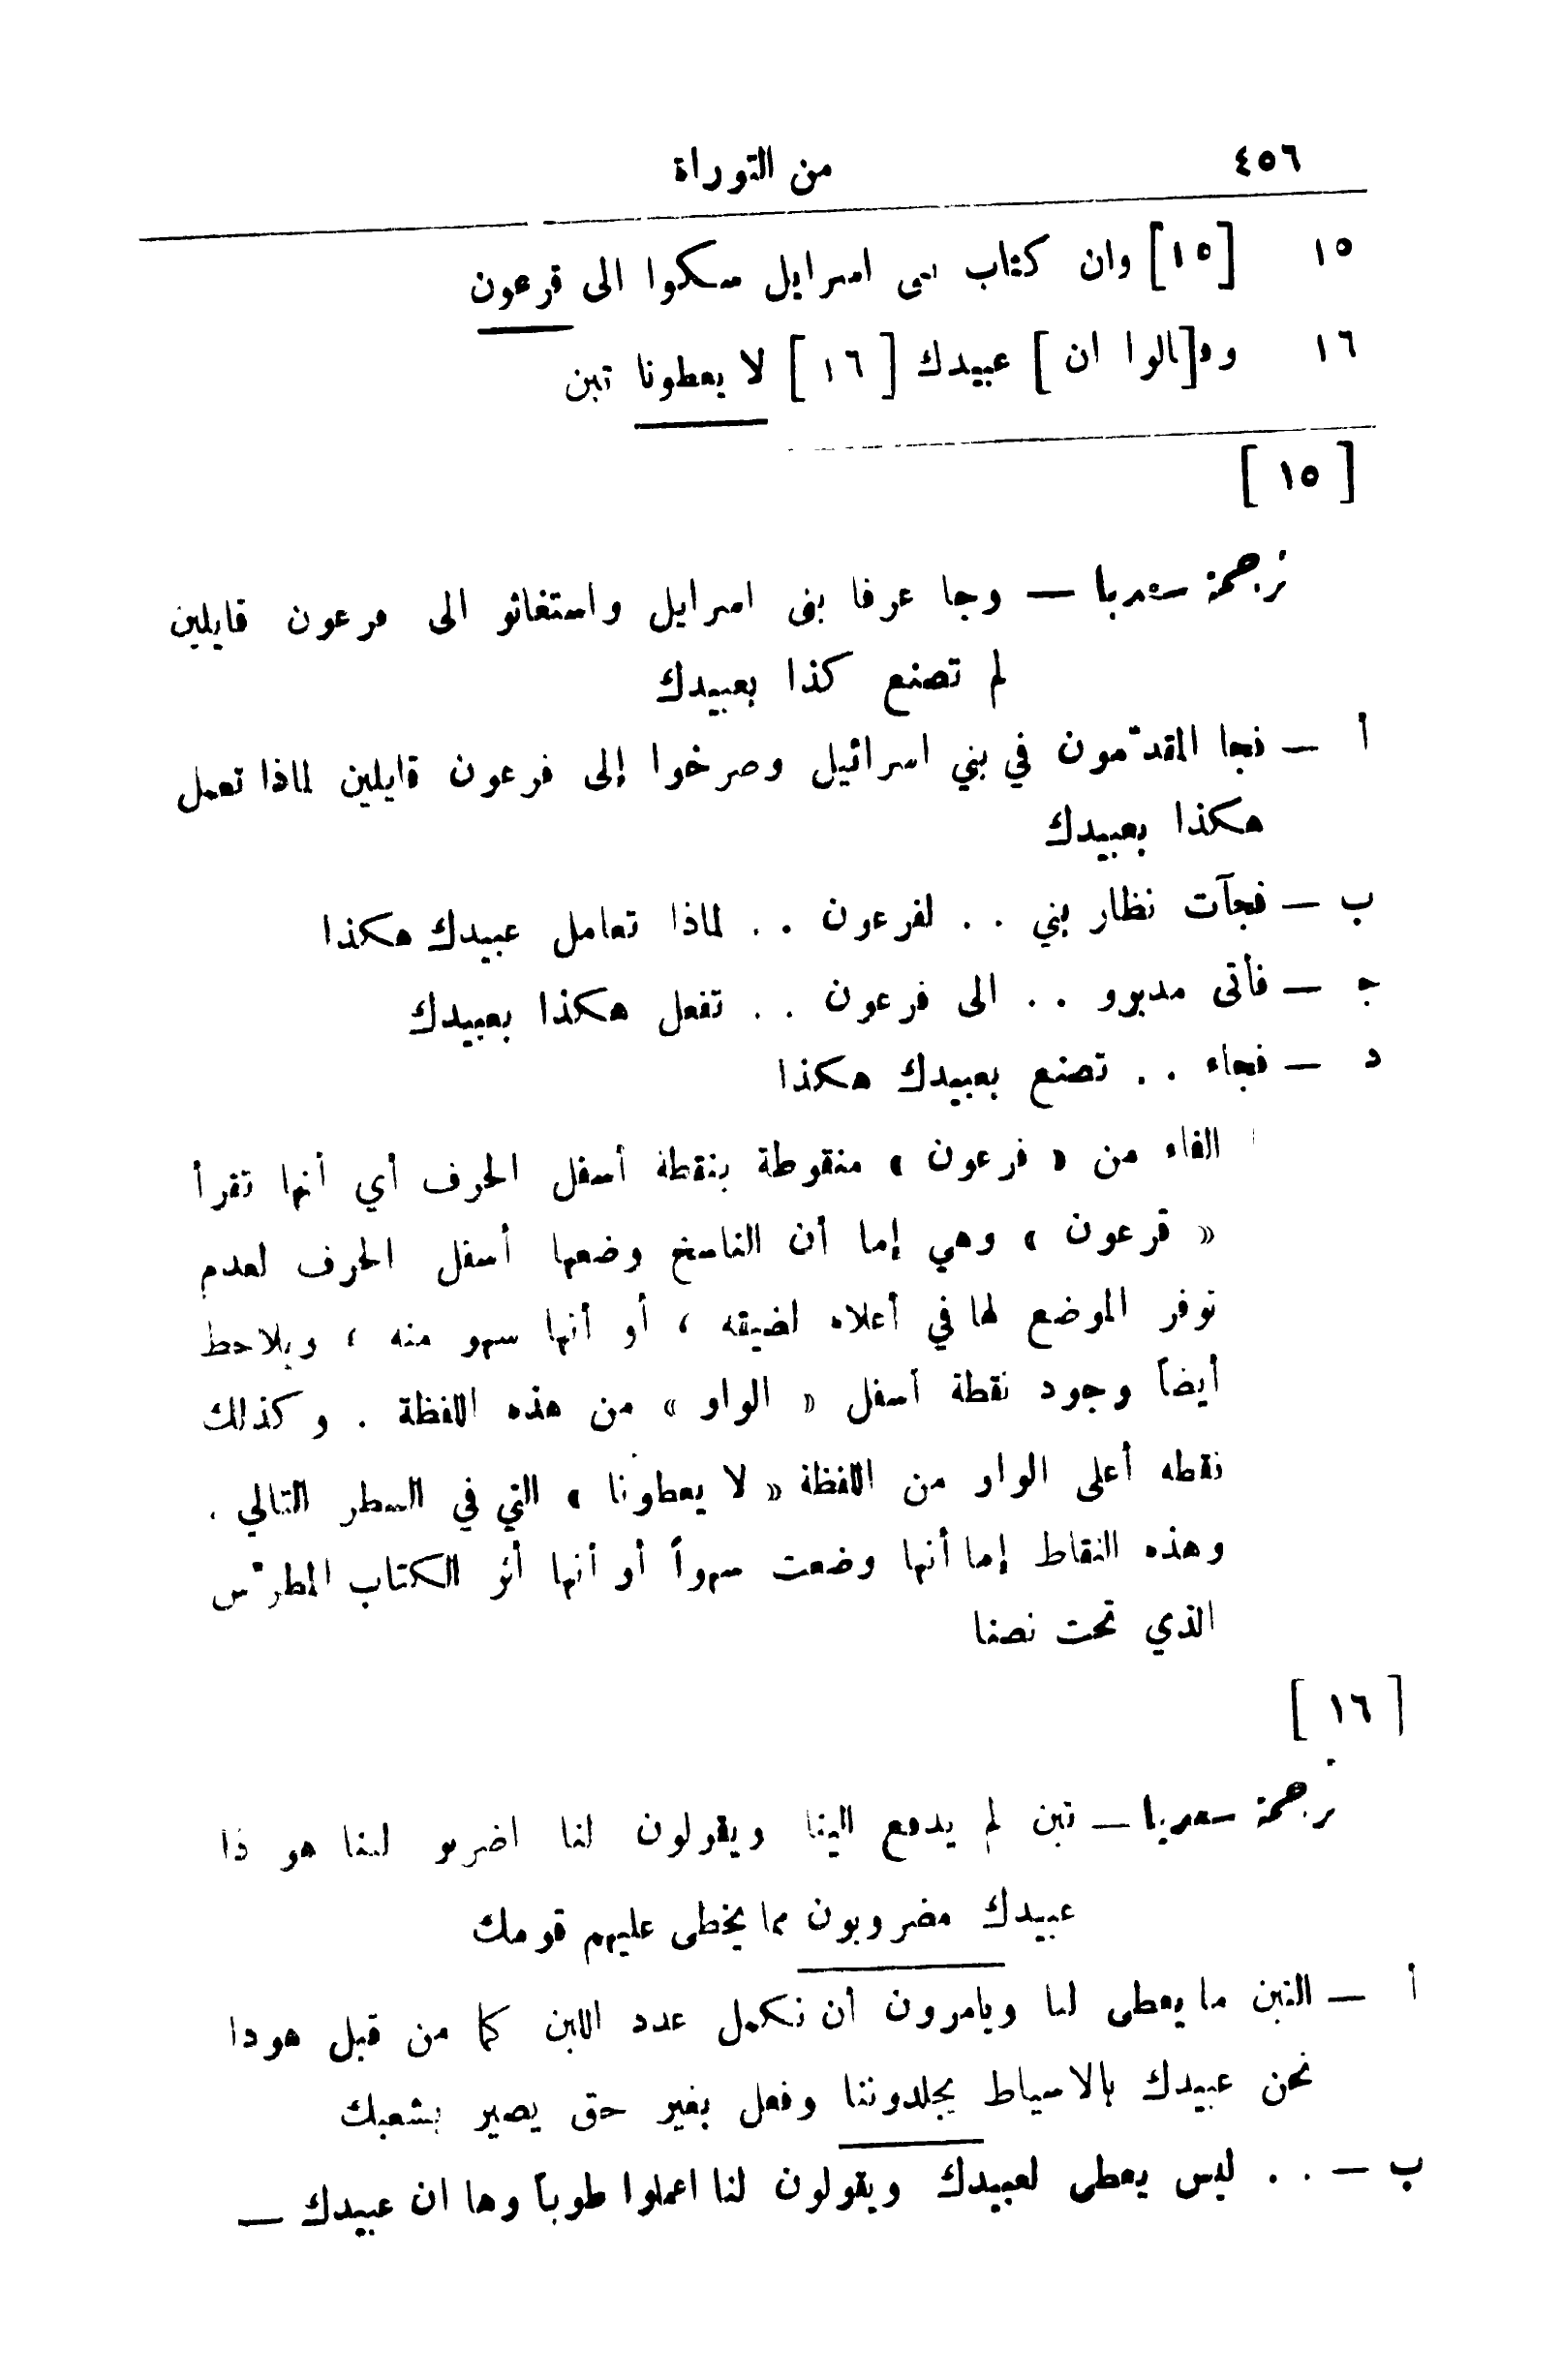 ٤٥٦ من التوراة
١٥ [١٥] وان كتاب ىنى اسرايل سكوا الى قرعون
١٦ وه[ـالوا ان] عبيدك [١٦] لا يعطونا تبن
[١٥]
ترجمة سعديا — وجا عرفا بنى اسرايل واستغاثو الى فرعون قايلين
لم تصنع كذا بعبيدك
أ — فجا المقدّمون في بني اسرائيل وصرخوا إلى فرعون قايلين لماذا تعمل
هكذا بعبيدك
ب — فجآت نظار بني .. لفرعون .. لماذا تعامل عبيدك هكذا
ج — فأتى مدبرو .. الى فرعون .. تفعل هكذا بعبيدك
د — فجاء .. تصنع بعبيدك هكذا
الفاء من « فرعون » منقوطة بنقطة أسفل الحرف أي أنها تقرأ
« قرعون » وهي إما أن الناسخ وضعها أسفل الحرف لعدم
توفر الموضع لها في أعلاه لضيقه ، أو أنها سهو منه ، ويلاحظ
أيضاً وجود نقطة أسفل « الواو » من هذه اللفظة . وكذلك
نقطه أعلى الواو من اللفظة « لا يعطونا » التي في السطر التالي .
وهذه النقاط إما أنها وضعت سهواً أو أنها أثر الكتاب المطرّس
الذي تحت نصنا
[١٦]
ترجمة سعديا — تبن لم يدفع الينا ويقولون لنا اضربو لبنا هو ذا
عبيدك مضروبون مما يخطى عليهم قومك
أ — التبن ما يعطى لنا ويامرون أن نكمل عدد اللبن كما من قبل هودا
نحن عبيدك بالاسياط يجلدوننا وفعل بغير حق يصير بشعبك
ب — .. ليس يعطى لعبيدك ويقولون لنا اعملوا طوباً وها ان عبيدك —